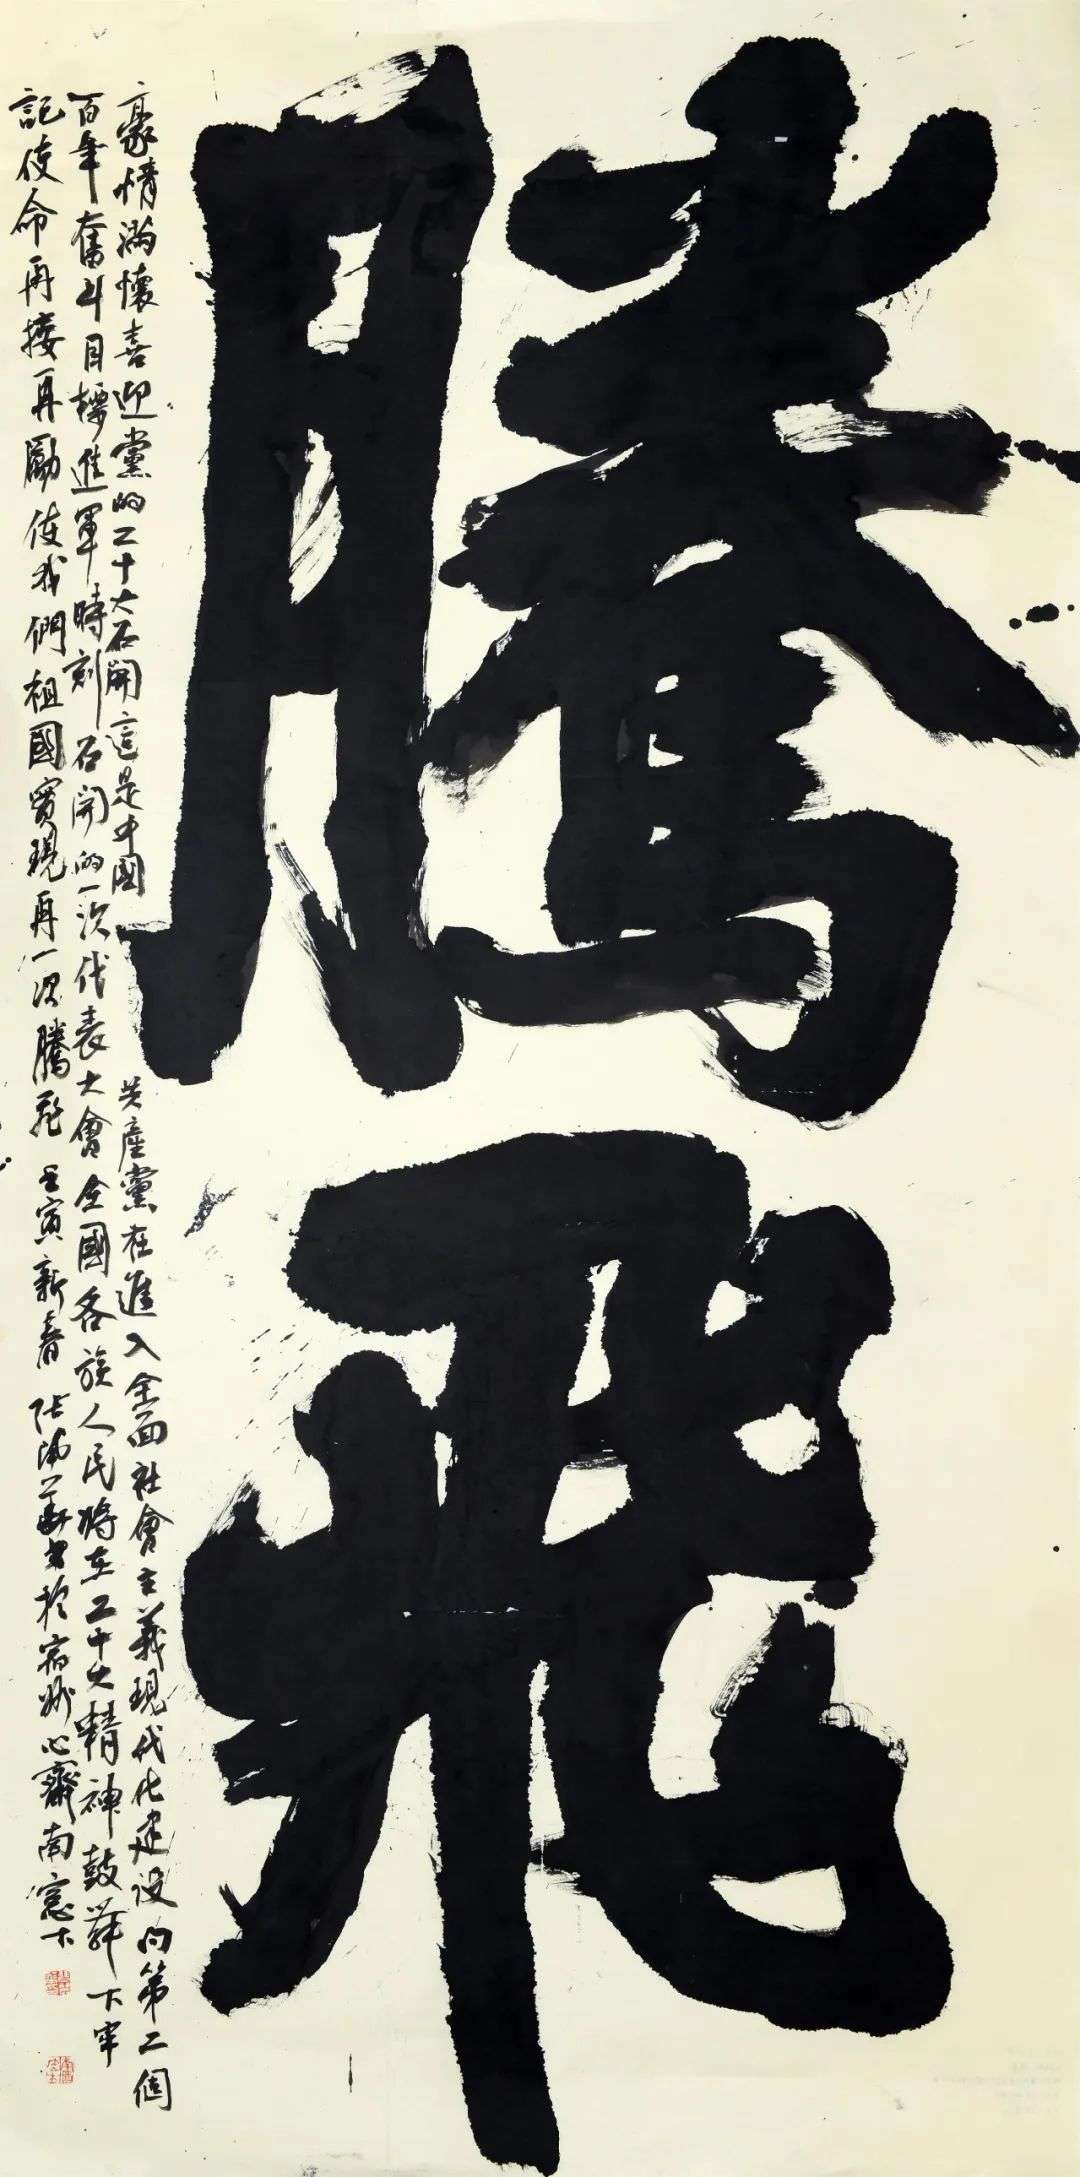 騰飛
豪情滿懷喜迎黨的二十大召開這是中國共產黨在進入全面社會主義現代化建设向第二個
百年奮斗目標進軍時刻召開的一次代表大會全國各族人民將在二十大精神鼓舞下牢
記使命再接再勵使我們祖國實現再一次騰飛 壬寅新春 張書於宿州心齋南窗下